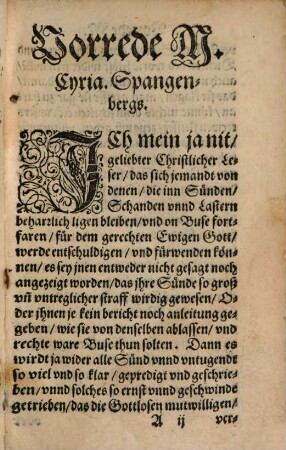 Vorrede M.
Cyria. Spangen-
bergs.
ICh mein ja nit/
geliebter Christlicher Le-
ser/ das sich jemandt von
denen/ die inn Sünden/
Schanden vnnd Lastern
beharzlich ligen bleiben/ vnd on Buse fort-
faren/ für dem gerechten Ewigen Gott/
werde entschuldigen/ vnd fürwenden kön-
nen/ es sey jnen entweder nicht gesagt noch
angezeigt worden/ das jhre Sünde so groß
vñ vntreglicher straff wirdig gewesen/ O-
der jhnen je kein bericht noch anleitung ge-
geben/ wie sie von denselben ablassen/ vnd
rechte ware Buse thun solten. Dann es
wirdt ja wider alle Sünd vnnd vntugendt
so viel vnd so klar/ gepredigt vnd geschrie-
ben/ vnnd solches so ernst vnnd geschwinde
getrieben/ das die Gottlosen mutwilligen/
A ij ver-